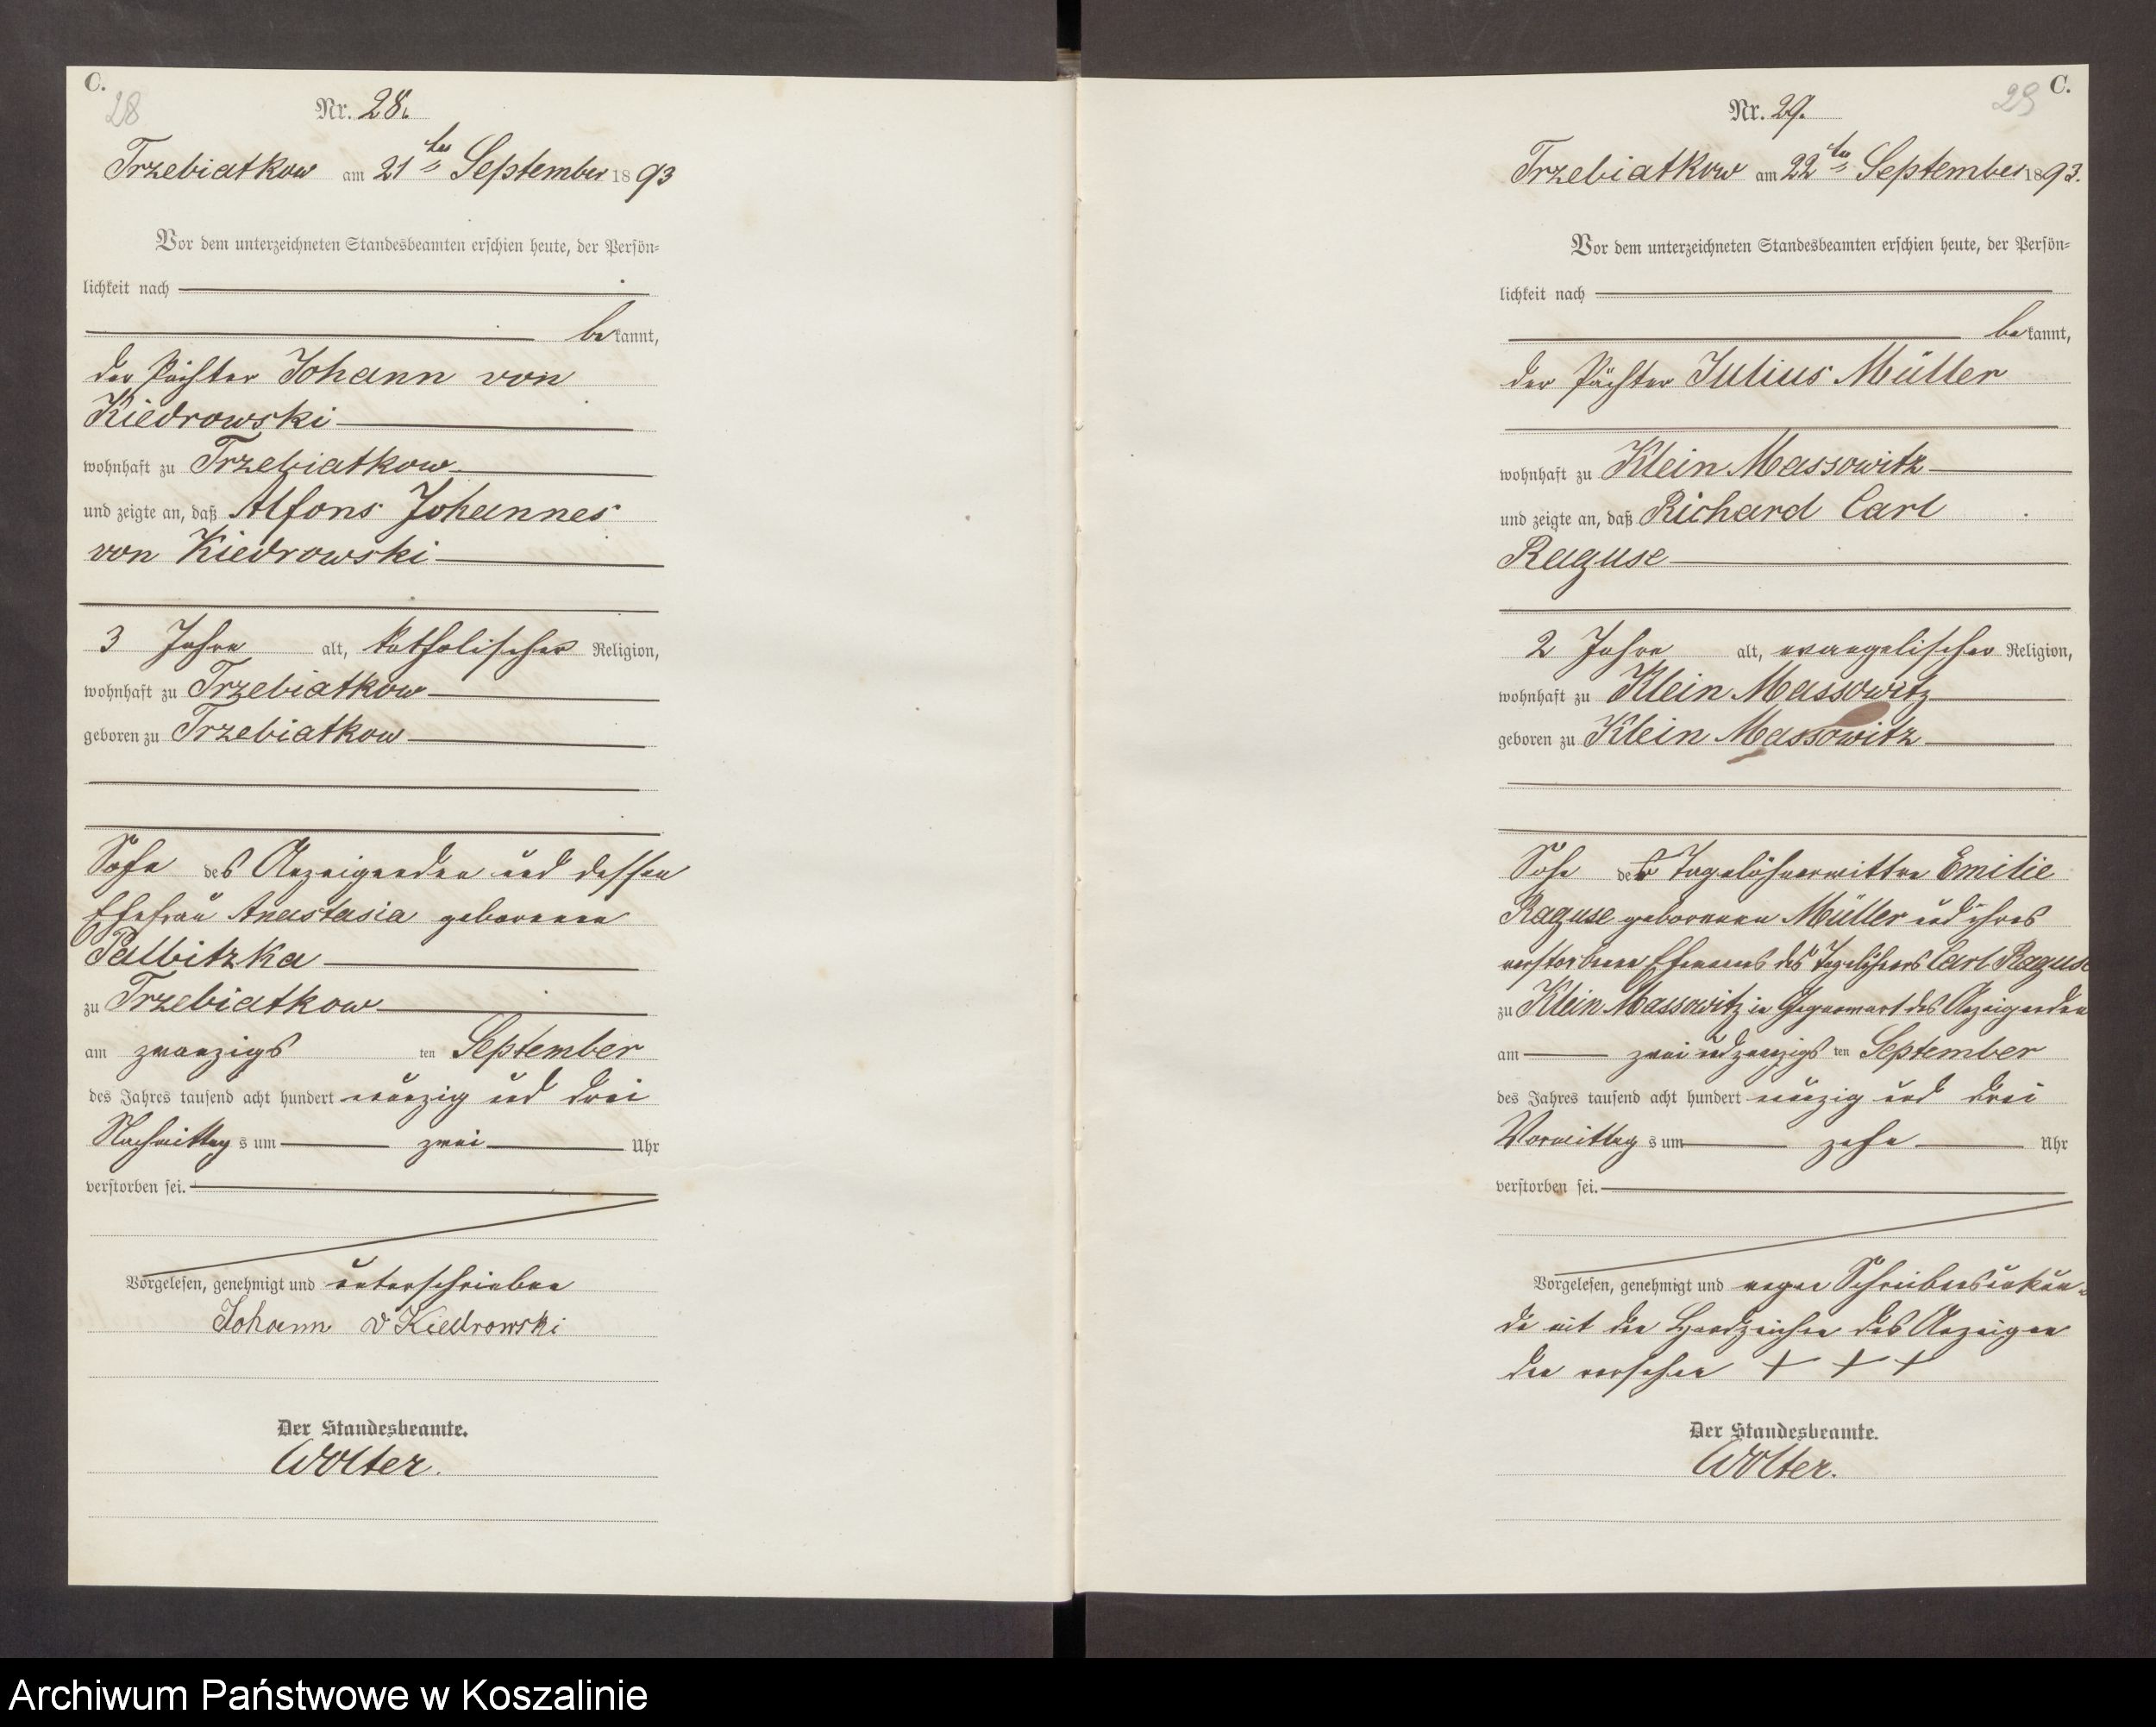 C.
28
Nr. 28.
Trzebiatkow am 21ten September 1893
Vor dem unterzeichneten Standesbeamten erschien heute, der Persön-
lichkeit nach
bekannt,
der Pächter Johann von
Kiedrowski
wohnhaft zu Trzebiatkow
und zeigte an, daß Alfons Johannes
von Kiedrowski
3 Jahre alt, katholischer Religion,
wohnhaft zu Trzebiatkow
geboren zu Trzebiatkow
Sohn des Anzeigenden und dessen
Ehefrau Anastasia geborenen
Palbitzka
zu Trzebiatkow
am zwanzigsten September
des Jahres tausend acht hundert neunzig und drei
Nachmittags um zwei Uhr
verstorben sei.
Vorgelesen, genehmigt und unterschrieben
Johann v Kiedrowski
Der Standesbeamte.
Wolter.
C.
29
Nr. 29.
Trzebiatkow am 22ten September 1893.
Vor dem unterzeichneten Standesbeamten erschien heute, der Persön-
lichkeit nach
bekannt,
der Pächter Julius Müller
wohnhaft zu Klein Massowitz
und zeigte an, daß Richard Carl
Raguse
2 Jahre alt, evangelischer Religion,
wohnhaft zu Klein Massowitz
geboren zu Klein Massowitz
Sohn der Tagelöhnerwittwe Emilie
Raguse geborenen Müller und ihres
verstorbenen Ehemanns des Tagelöhners Carl Raguse
zu Klein Massowitz in Gegenwart des Anzeigenden
am zwei und zwanzigsten September
des Jahres tausend acht hundert neunzig und drei
Vormittags um zehn Uhr
verstorben sei.
Vorgelesen, genehmigt und wegen Schreibensunkun-
de mit den Handzeichen des Anzeigen
den versehen + + +
Der Standesbeamte.
Wolter.
Archiwum Państwowe w Koszalinie